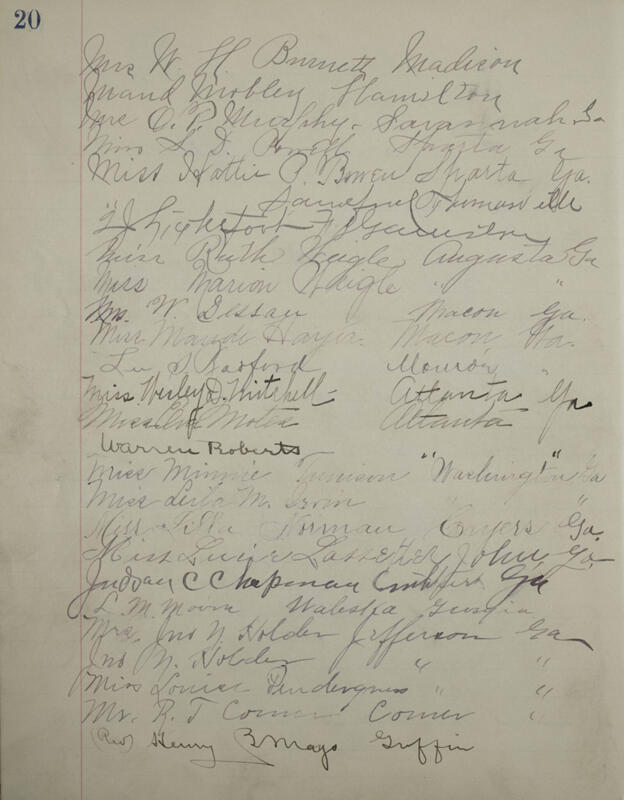 20
Mrs W. H Burnett Madison
Maud Mobley Hamilton
Mrs O. P. Murphy. Savannah Ga
Miss L. D. Powell Sparta Ga
Miss Hattie P. Bowen Sparta Ga.
Thomasville
Miss Ruth Weigle Augusta Ga
Miss Marion Weigle " "
Mrs. W. Gessau Macon Ga.
Miss Maude Hayes. Macon Ga.
Lee S Radford Monroe "
Miss Wesley D. Mitchell Atlanta Ga
Miss Motes Atlanta
Warren Roberts
Miss Minnie "Washington" Ga
Miss Leila M. Irvin " "
Miss Norman Ga.
Miss Lucie Lasseter Ga.
Judson C Chapman Cuthbert Ga
L. M. Moore Waleska Georgia
Mrs. Jno N. Holder Jefferson Ga
Jno N. Holder " "
Miss Louise Pendergrass " "
Mr. R. T Comer Comer "
(Rev) Henry B Mays Griffin